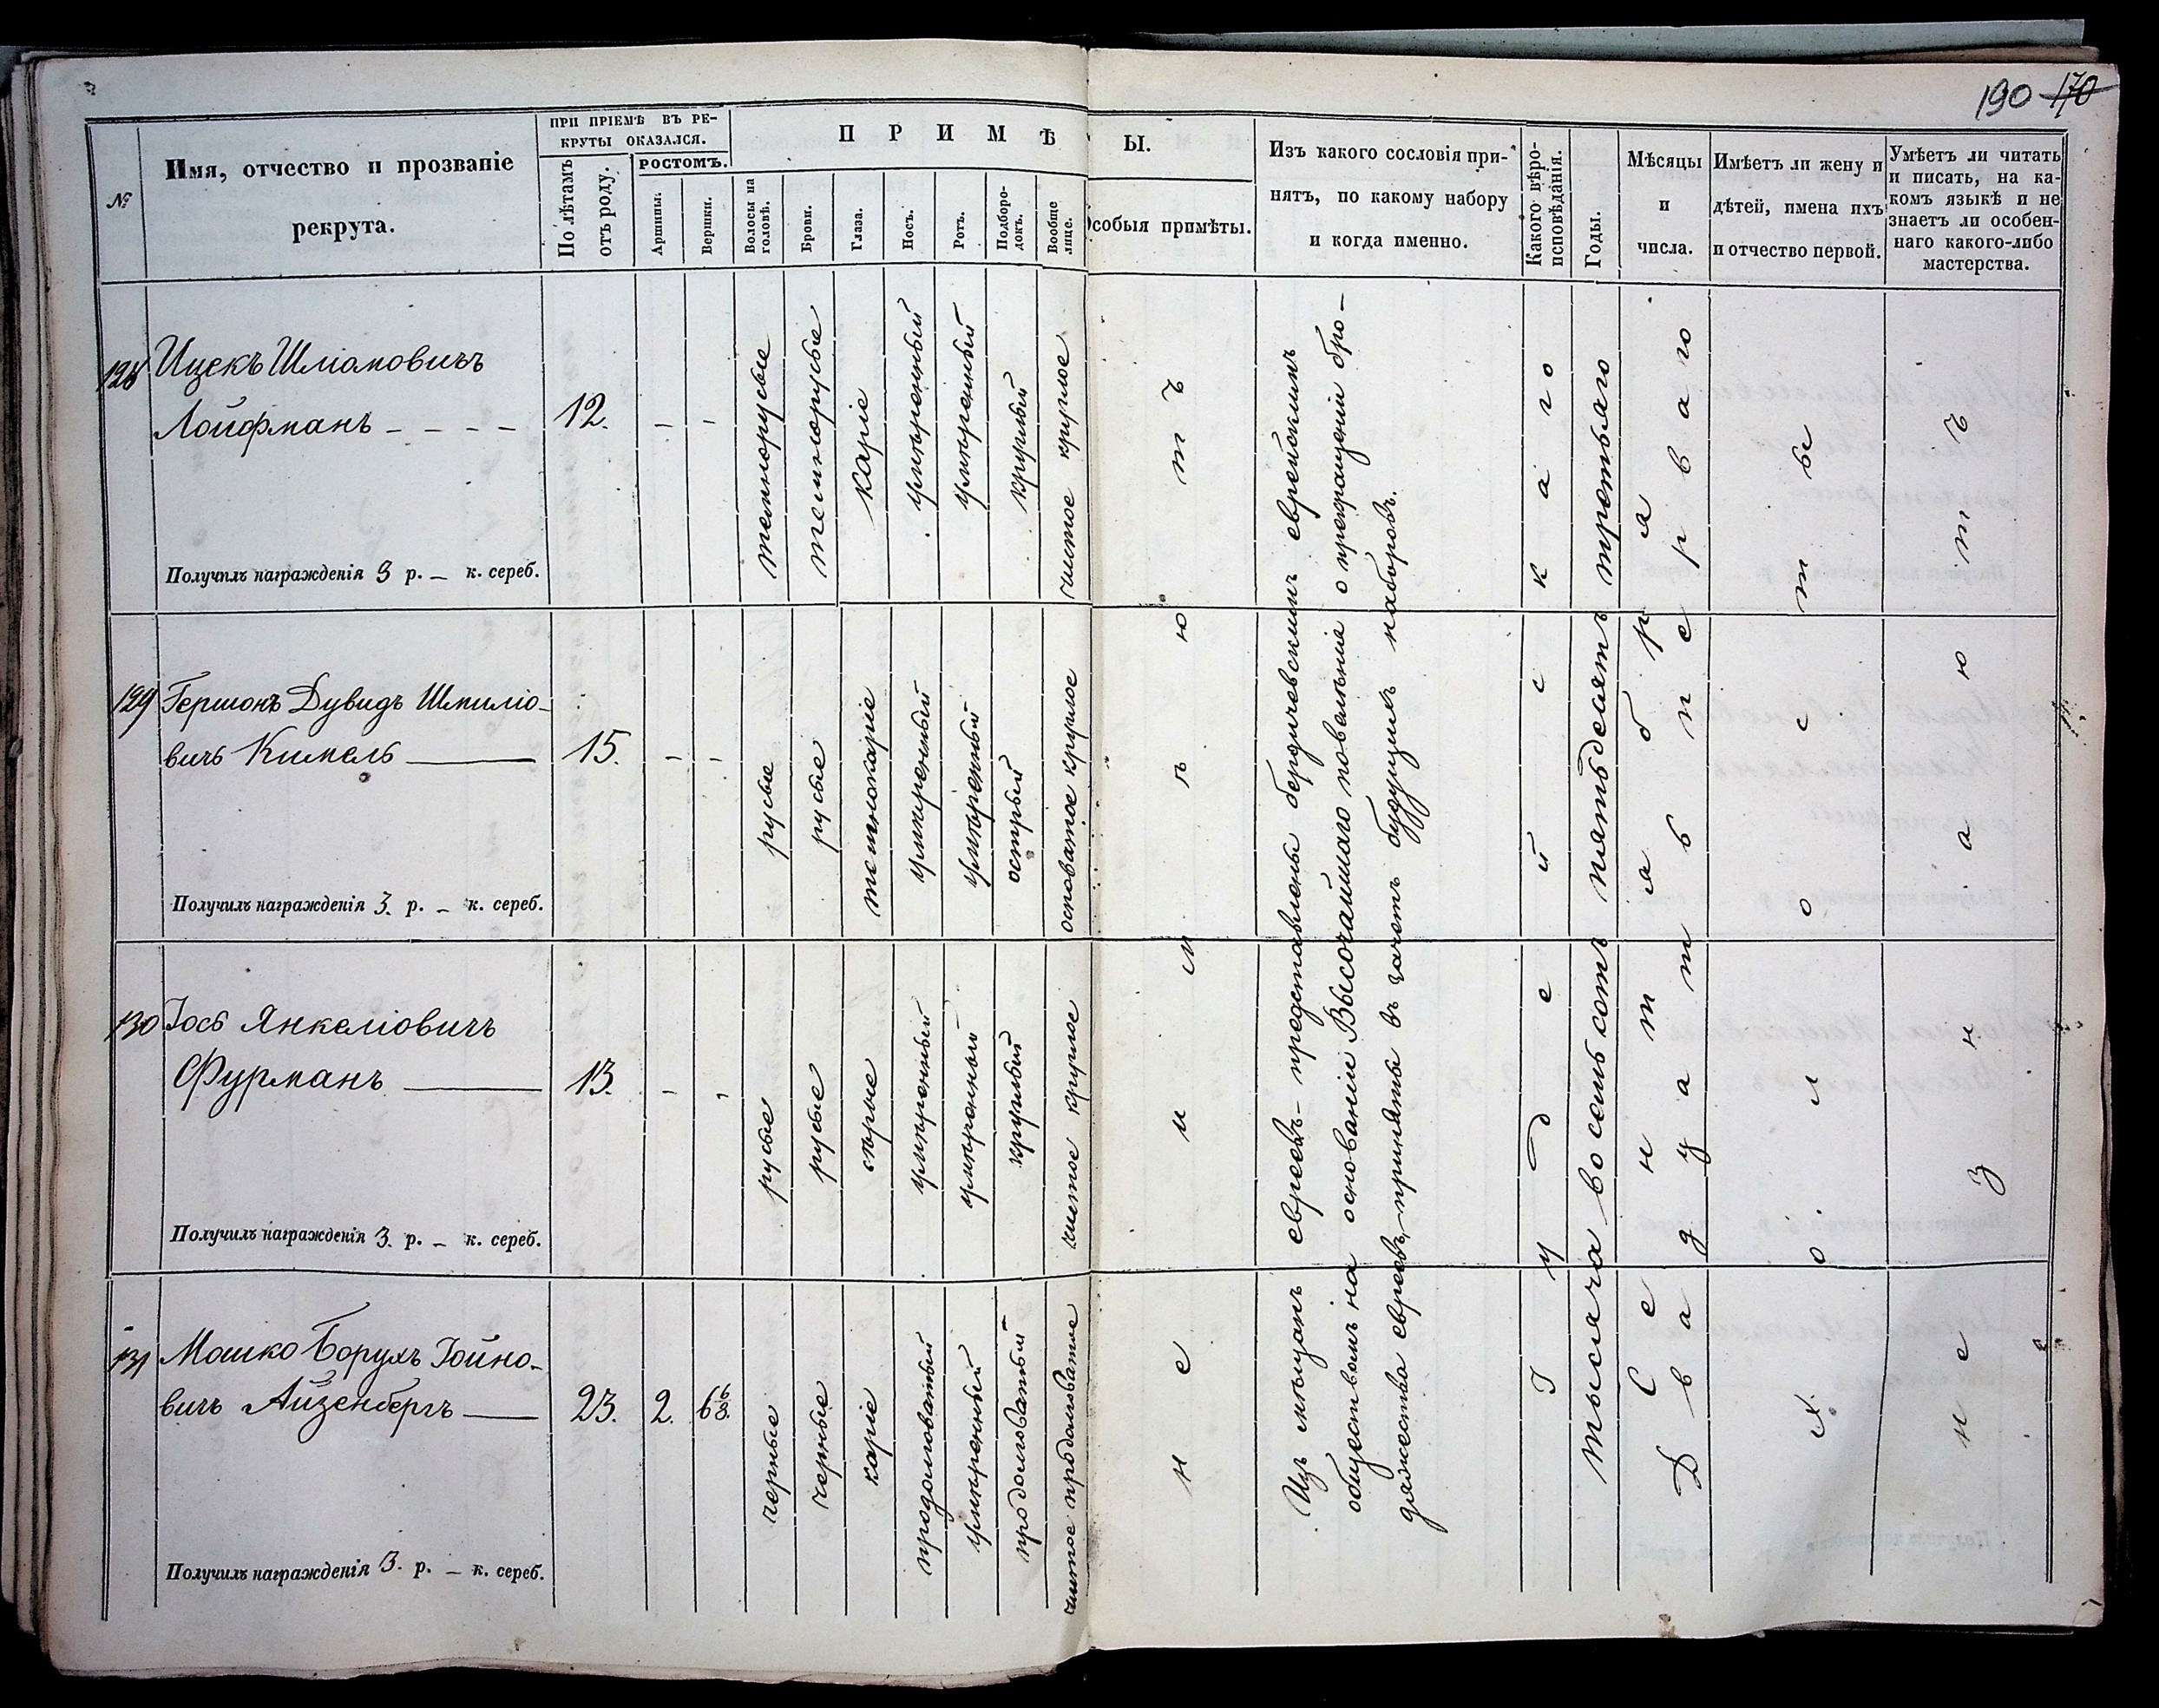 190 170
№
Имя, отчество и прозваніе
рекрута.
ПРИ ПРІЕМѢ ВЪ РЕ-
КРУТЫ ОКАЗАЛСЯ.
По лѣтамъ
отъ роду.
РОСТОМЪ.
Аршины.
Вершки.
ПРИМѢ
Ы.
Волосы на
головѣ.
Брови.
Глаза.
Носъ.
Ротъ.
Подборо-
докъ.
Вообще
лице.
Особыя примѣты.
Изъ какого сословія при-
нятъ, по какому набору
и когда именно.
Какого вѣро-
исповѣданія.
Годы.
Мѣсяцы
и
числа.
Имѣетъ ли жену и
дѣтей, имена ихъ
и отчество первой.
Умѣетъ ли читать
и писать, на ка-
комъ языкѣ и не
знаетъ ли особен-
наго какого-либо
мастерства.
128 Ицекъ Шліомовичъ
Лойфманъ - - - - 12. - -
темнорусые
темнорусые
каріе
умѣренный
умѣренный
круглый
чистое круглое
Получилъ награжденія 3 р. — к. сереб.
129 Гершонъ Дувидъ Шмиліо-
вичъ Кимель — 15. - -
русые
русые
темнокаріе
умѣренный
умѣренный
острый
осповатое круглое
Получилъ награжденія 3. р. — к. сереб.
130 Іось Янкеліовичъ
Фурманъ — 13. - -
русые
русые
сѣрые
умѣренный
умѣренный
круглый
чистое круглое
Получилъ награжденія 3. р. — к. сереб.
131 Мошко Борухъ Іойно-
вичъ Айзенбергъ — 23. 2. 6 6/8.
черные
черные
каріе
продолговатый
умѣренный
продолговатый
чистое продолговатое
Получилъ награжденія 3. р. — к. сереб.
не имѣютъ
Изъ мѣщанъ евреевъ – представлены бердичевскимъ еврейскимъ
обществомъ на основаніи Высочайшаго повелѣнія о прекращеніи бро-
дяжества евреевъ, приняты въ зачетъ будущихъ наборовъ.
Іудейскаго
тысяча восемьсотъ пятьдесятъ третьяго
Сентября
Двадцать перваго
Холосты
не знаютъ